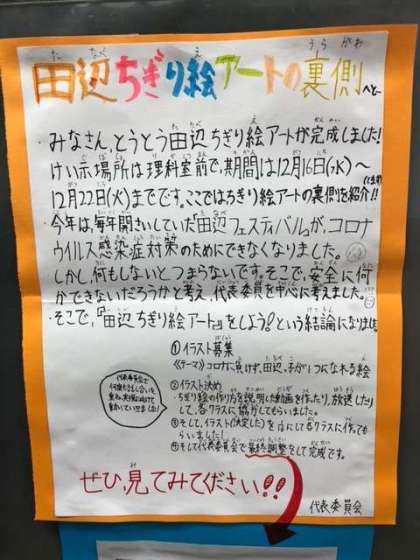 田辺ちぎり絵アートの裏側へと〜
みなさん、とうとう田辺ちぎり絵アートが完成しました!
けい示場所は理科室前で、期間は12月16日(水)〜
12月22日(火)までです。ここではちぎり絵アートの裏側を紹介!!
今年は、毎年開さいしていた「田辺フェスティバル」が、コロナ
ウイルス感染症対策のためにできなくなりました。
しかし、何もしないとつまらないです。そこで、安全に何
かできないだろうかと考え、代表委員を中心に考えました。
そこで、「田辺ちぎり絵アート」をしよう!という結論になりました
①イラスト募集
《テーマ》コロナに負けず、田辺っ子が1つになれる絵
②イラスト決め
・ちぎり絵の作り方を説明した動画を作たり、放送したり
して、各クラスに協力してもらいました。
③そして、イラスト(決定した)を元にして各クラスに作ても
らいました!
④そして代表委員会で最終調整をして完成です。
代表委員会で
何度も話し合いを
重ね、実現に向けて
動いていきました!
ぜひ、見てみてください!!
代表委員会